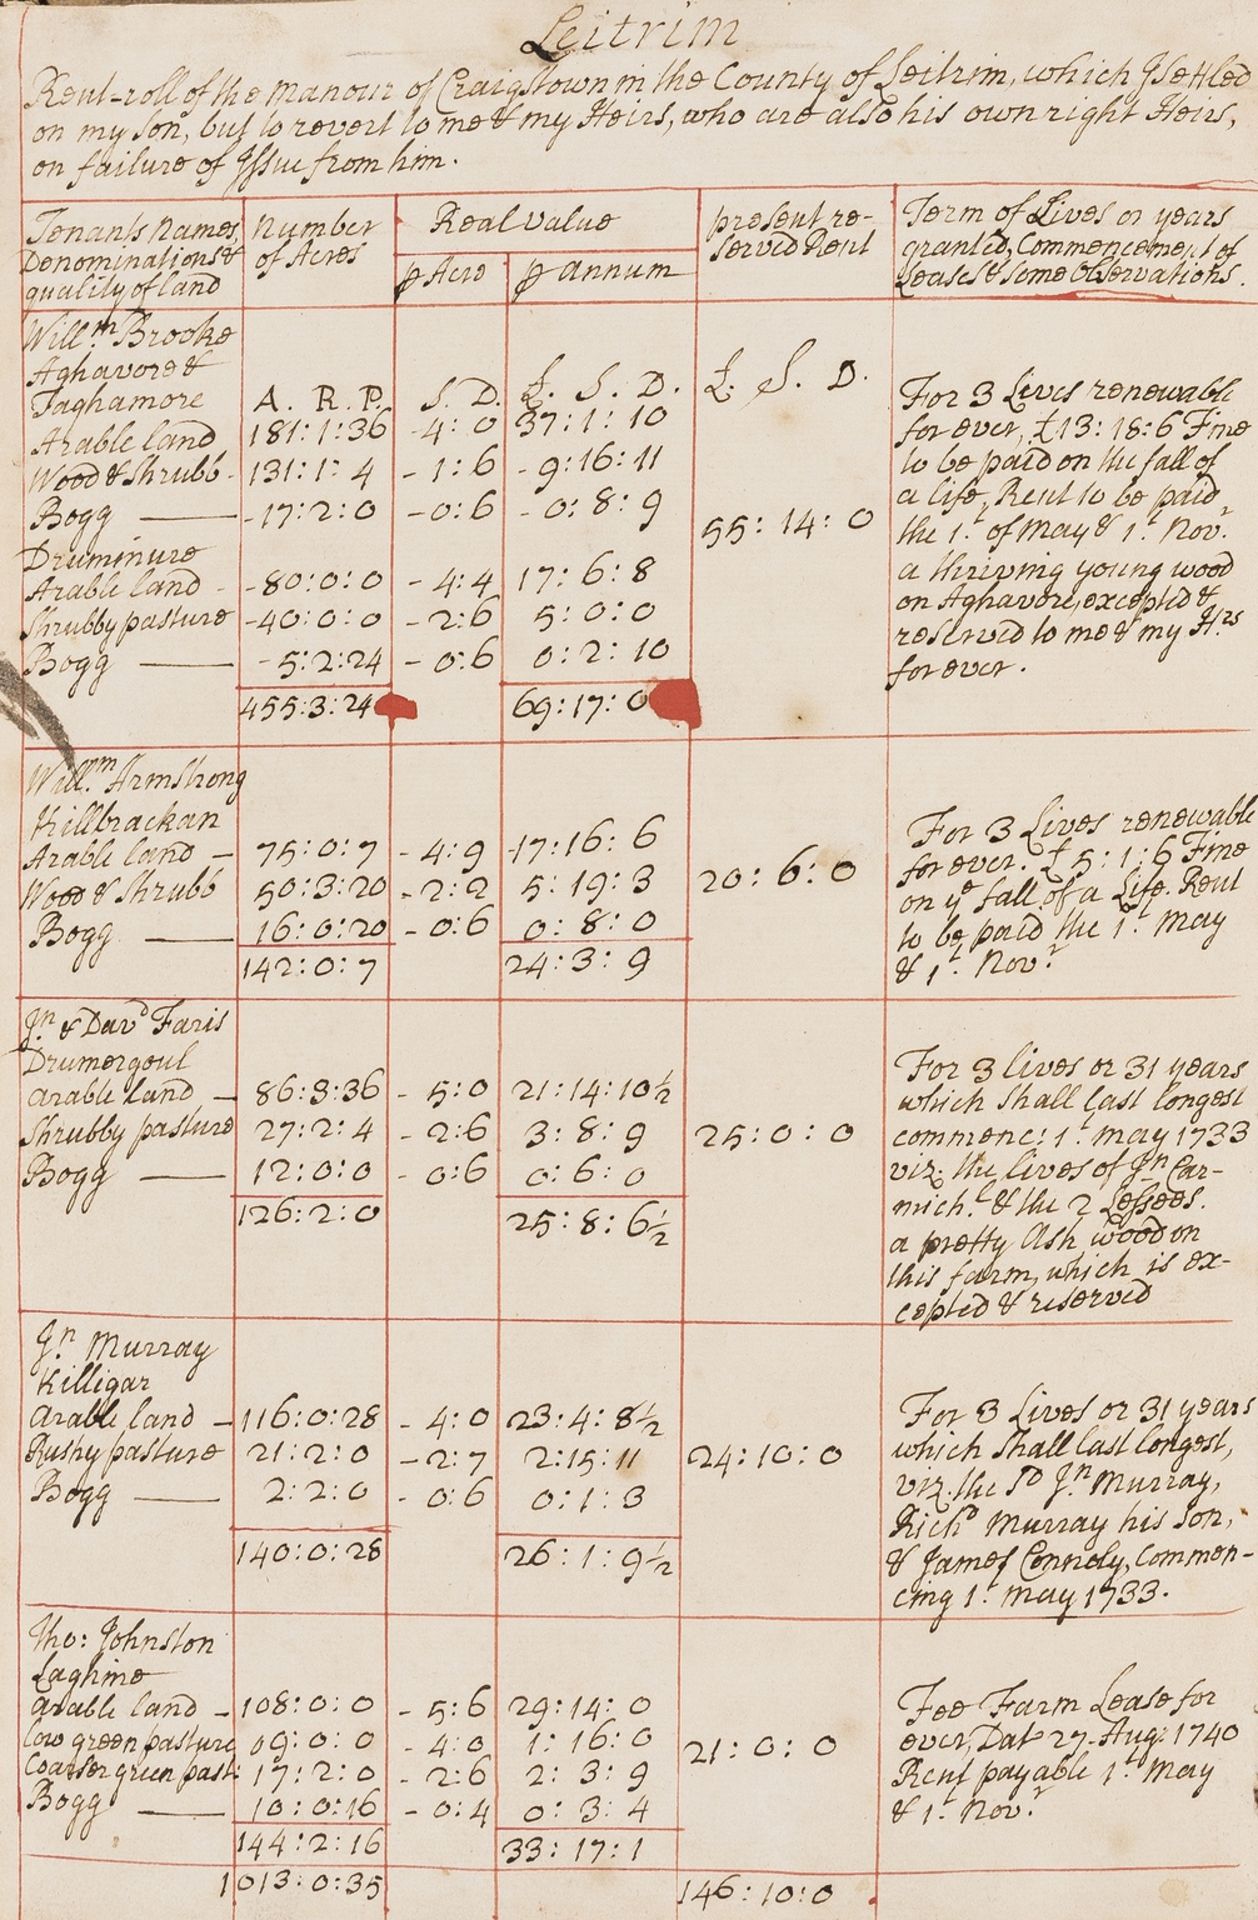 Leitrim
Rent-roll of the Manour of Craigstown in the County of Leitrim, which I settled
on my son, but to revert to me & my Heirs, who are also his own right Heirs,
on failure of Issue from him.
Tenants Names, Denominations & quality of land | Number of Acres | Real value | present reserved Rent | Term of Lives or years granted, Commencement of Leases & some Observations.
p Acre | p annum
Will.m Brooke
Aghavore &
Taghamore A. R. P. S. D. £. S. D. £. S. D.
Arable land 181:1:36 - 4:0 37:1:10
Wood & Shrubb - 131:1:4 - 1:6 - 9:16:11
Bogg — - 17:2:0 - 0:6 - 0:8:9
55:14:0
Druminure
Arable land - - 80:0:0 - 4:4 17:6:8
Shrubby pasture - 40:0:0 - 2:6 5:0:0
Bogg — - 5:2:24 - 0:6 0:2:10
455:3:24 69:17:0
For 3 Lives renewable
for ever, £13:18:6 Fine
to be paid on the fall of
a life, Rent to be paid
the 1.t of May & 1.t Nov.r
a thriving young wood
on Aghavore, excepted &
reserved to me & my H.rs
for ever.
Will.m Armstrong
Killbrackan
Arable land - 75:0:7 - 4:9 17:16:6
Wood & Shrubb 50:3:20 - 2:2 5:19:3 20:6:0
Bogg — 16:0:20 - 0:6 0:8:0
142:0:7 24:3:9
For 3 Lives renewable
for ever. £5:1:6 Fine
on ye fall of a Life. Rent
to be paid the 1.t May
& 1.t Nov.r
Jn & Davd Faris
Drumergoul
arable land - 86:3:36 - 5:0 21:14:10½
Shrubby pasture 27:2:4 - 2:6 3:8:9 25:0:0
Bogg — 12:0:0 - 0:6 0:6:0
126:2:0 25:8:6½
For 3 lives or 31 years
which shall last longest
commenc: 1.t May 1733
viz. the lives of Jn Car-
mich.l & the 2 Lessees.
a pretty Ash wood on
this farm, which is ex-
cepted & reserved
J.n Murray
Killigar
arable land - 116:0:28 - 4:0 23:4:8½
Rushy pasture 21:2:0 - 2:7 2:15:11 24:10:0
Bogg — 2:2:0 - 0:6 0:1:3
140:0:28 26:1:9½
For 3 Lives or 31 years
which shall last longest,
viz. the sd J.n Murray,
Richd Murray his son,
& James Connoly, Commen-
cing 1.t May 1733.
Tho: Johnston
Laghine
arable land - 108:0:0 - 5:6 29:14:0
low green pasture 09:0:0 - 4:0 1:16:0
21:0:0
Coarser green past: 17:2:0 - 2:6 2:3:9
Bogg — 10:0:16 - 0:4 0:3:4
144:2:16 33:17:1
Fee Farm Lease for
ever, Dat 27. Aug: 1740
Rent payable 1.t May
& 1.t Nov.r
1013:0:35 146:10:0